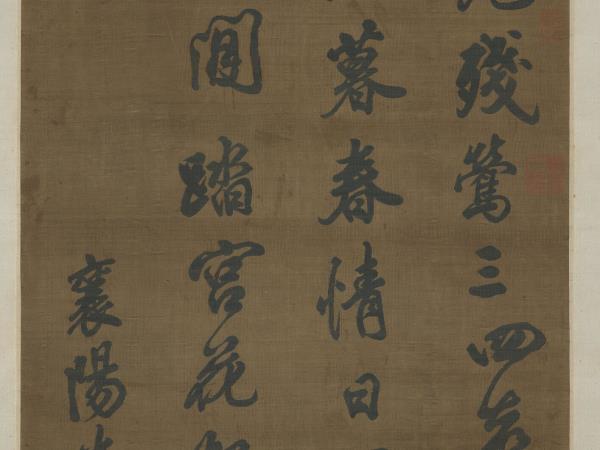 殘鶯三四
暮春情日
閒踏宮花
襄陽